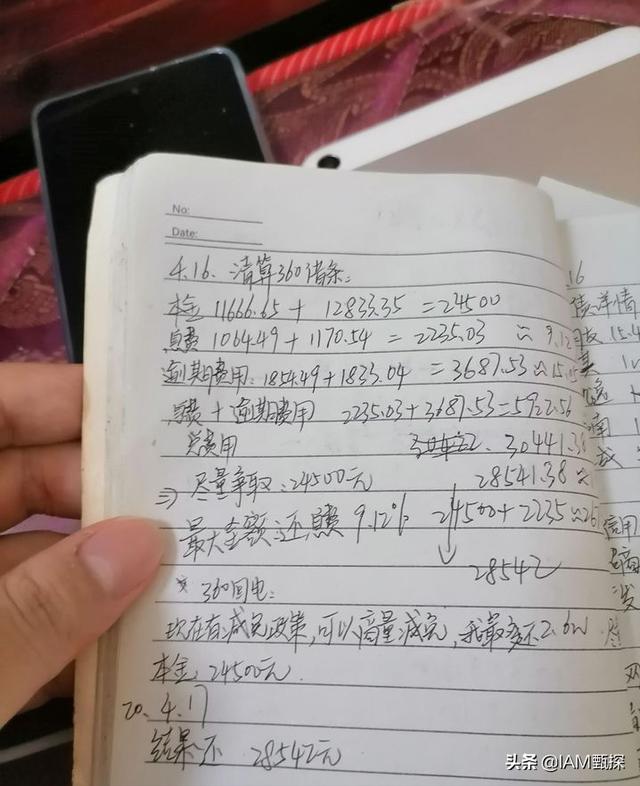 No:
Date:
4.16. 清算360借条:
本金 11666.65 + 12833.35 = 24500
息费 1064.49 + 1170.54 = 2235.03 ≈ 9.12
逾期费用: 1854.49 + 1833.04 = 3687.53 ≈ 15.05
息费 + 逾期费用 2235.03 + 3687.53 = 5922.56
总费用 30441.38
⇒ 尽量争取: 24500元 28541.38
最大全额还息费 9.12% 24500 + 2235 ≈ 26
28542
* 360回电:
现在有减免政策,可以商量减免,我最多还2.6w
本金 24500元.
20. 4.17
结果还 28542元
16
债详情
15.4
信用
头条 @IAM甄探